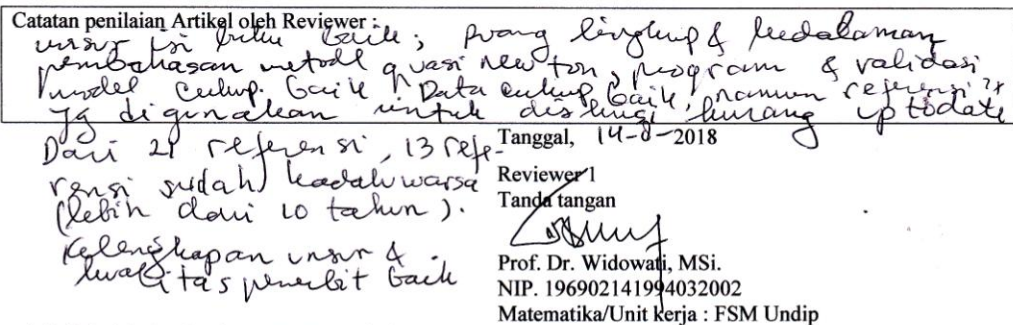 Catatan penilaian Artikel oleh Reviewer :
unsur isi buku baik; Ruang lingkup & kedalaman
pembahasan metode quasi newton, program & validasi
model cukup baik, Data cukup baik, namun referensi2x
yg digunakan untuk diskusi kurang uptodate
Dari 21 referensi, 13 refe-
rensi sudah kadaluwarsa
(lebih dari 10 tahun).
Kelengkapan unsur &
kualitas penerbit baik
Tanggal, 14-8-2018
Reviewer 1
Tanda tangan
Prof. Dr. Widowati, MSi.
NIP. 196902141994032002
Matematika/Unit kerja : FSM Undip